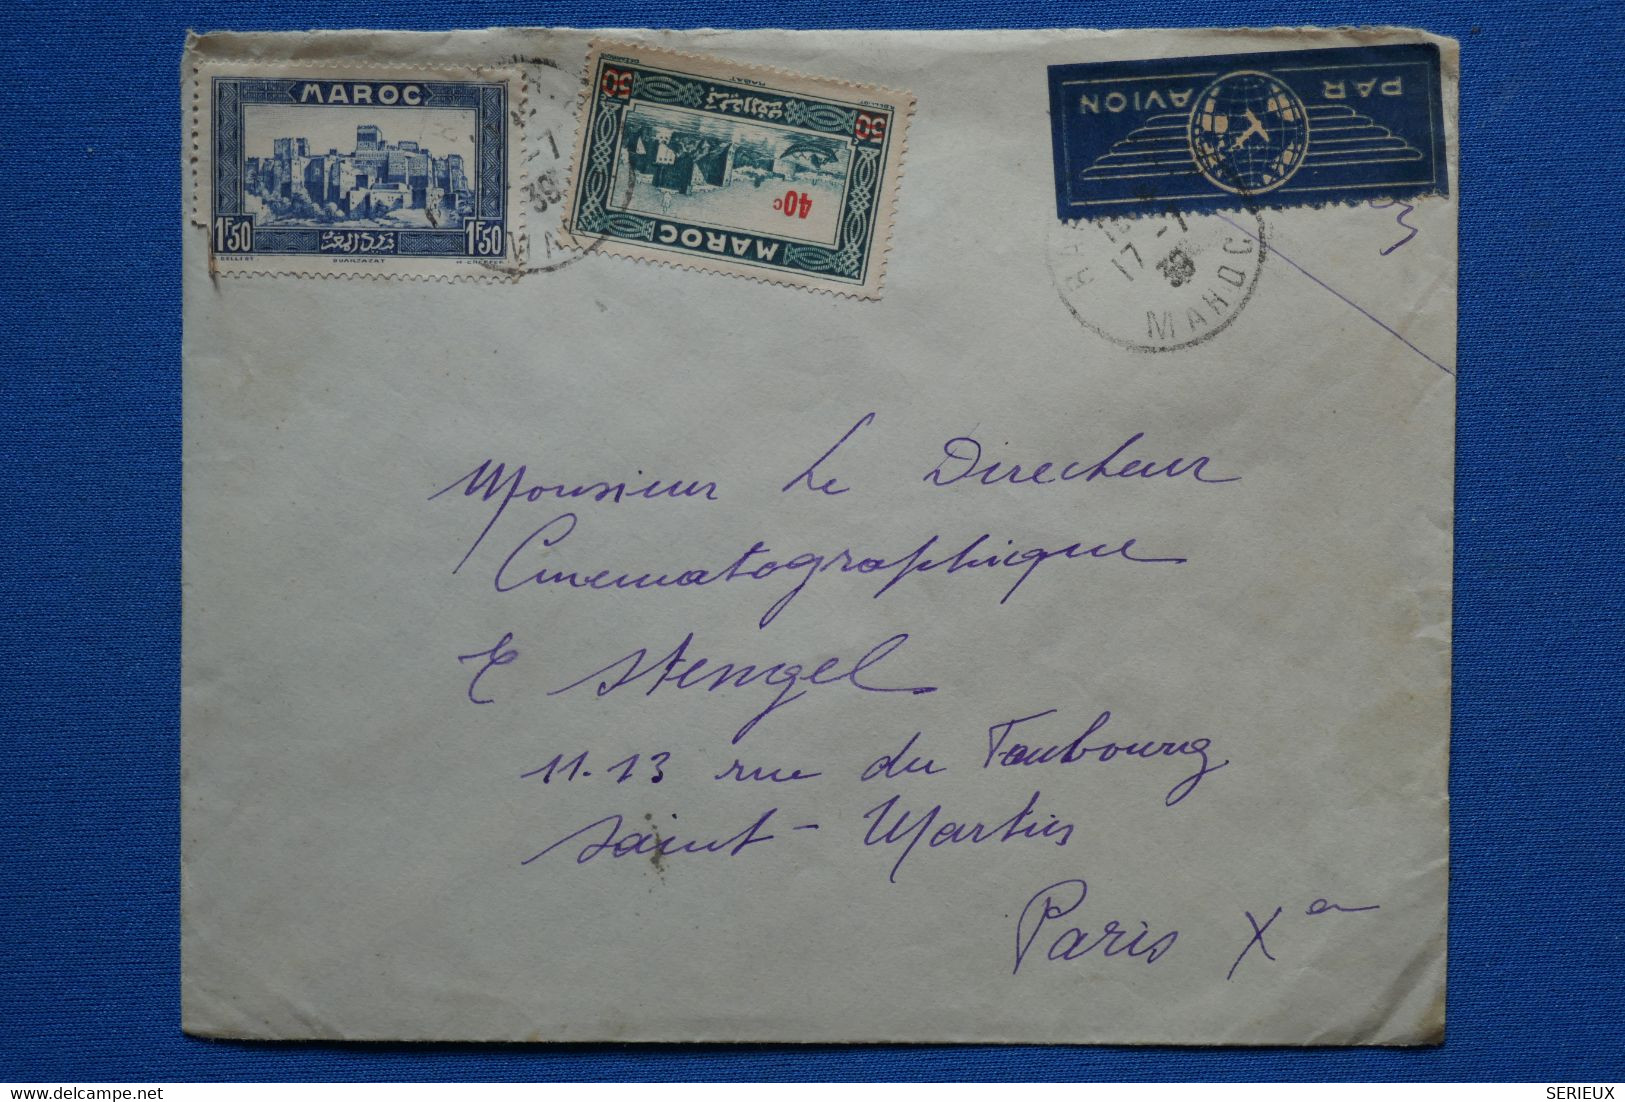 MAROC
1F50 1F50
DELZERS
MAROC
50 50
40c
RABAT
PAR AVION
17 -7
39
MAROC
Monsieur Le Directeur
Cinematographique
E Stengel
11.13 rue du Faubourg
Saint-Martin
Paris Xe
SERIEUX